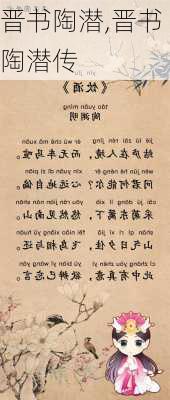 晋书陶潜,晋书
陶潜传
《饮酒》
táo yuān míng
陶渊明
jié lú zài rén jìng ér wú chē mǎ xuān
结庐在人境，而无车马喧。
wèn jūn hé néng ěr xīn yuǎn dì zì piān
问君何能尔？心远地自偏。
cǎi jú dōng lí xià yōu rán jiàn nán shān
采菊东篱下，悠然见南山。
shān qì rì xī jiā fēi niǎo xiāng yǔ huán
山气日夕佳，飞鸟相与还。
cǐ zhōng yǒu zhēn yì yù biàn yǐ wàng yán
此中有真意，欲辨已忘言。